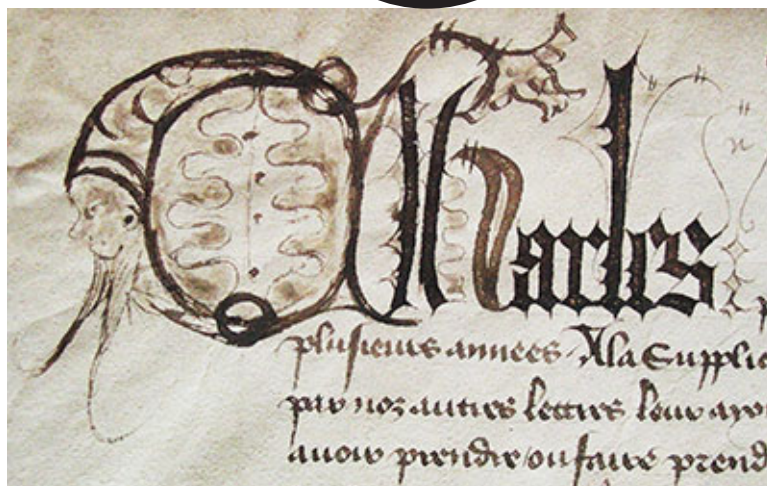 Charles
plusieurs annees A la Supplic
par noz autres lettres leur ayo
auoir prendre ou faire prend